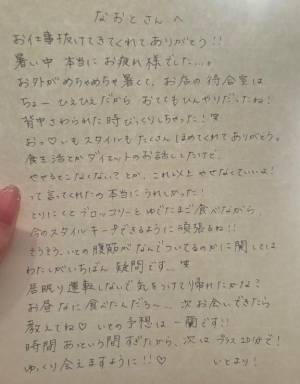 なおとさん へ
お仕事抜けてきてくれてありがとう!!
暑い中 本当にお疲れ様でした…。
お外がめちゃめちゃ暑くて、お店の待合室は
ちょー ひえひえだから おててもひんやりだったね!
背中さわられた時びっくりしちゃった!笑
おっ♡いもスタイルもたくさんほめてくれてありがとう。
食生活とかダイエットのお話したけど、
やせるとこなくない?とか、これ以上 やせなくていいよ!
って言ってくれたの本当にうれしかった!
とりにくとブロッコリーとゆでたまご食べながら、
今のスタイルキープできるように頑張るね!!
そうそう、いとの腹筋がなんでついてるのかに関しては
わたしがいちばん 疑問です…笑
居眠り運転しないで気をつけて帰れたかな?
お昼なに食べたんだろ〜、次お会いできたら
教えてね♡ いとの予想は一蘭です!!
時間あっという間すぎたから、次は プラス20分で!
ゆっくり会えますように!!♡
いとより!